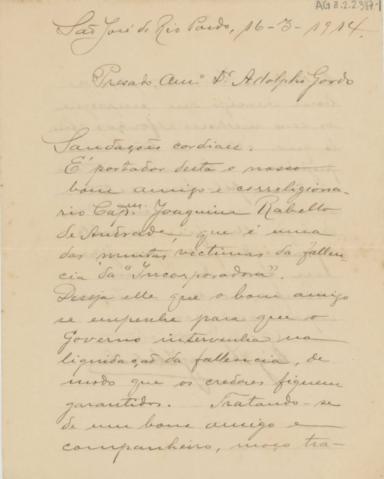 AG 8.2.2387-1
São José do Rio Pardo, 16-3-1914.
Presado Amº Dr. Adolpho Gordo
Saudações cordiaes.
É portador desta o nosso
bom amigo e correligiona-
rio Capm. Joaquim Rabello
de Andrade, que é uma
das muitas victimas da fallen-
cia da "Incorporadora".
Deseja elle que o bom amigo
se empenhe para que o
Governo intervenha na
liquidação da fallencia, de
modo que os credores fiquem
garantidos. Tratando-se
de um bom amigo e
companheiro, moço tra-